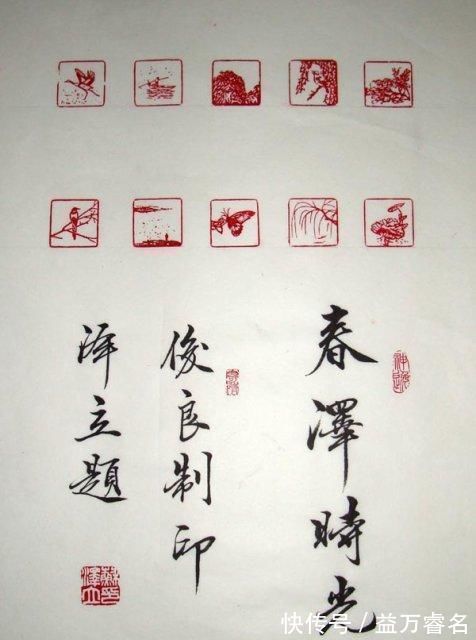 春澤時光
俊良制印
泽立題
快传号/益万睿名